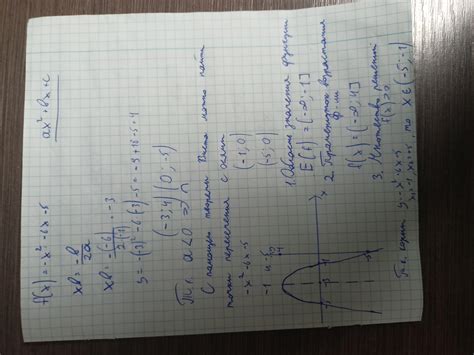 ax² + bx + c
f(x) = -x² - 6x - 5
xв = -b/2a
xв = -(-6)/2·(-1) = -3
y = -(-3)² - 6(-3) - 5 = -9 + 18 - 5 = 4
(-3; 4) (0; -5)
Т.к. a < 0 ⇒ ∩
С помощью теоремы Виета можно найти
точки пересечения с осями
-x² - 6x - 5 (-1; 0)
-1 и -5 (-5; 0)
1. Область значения функции
E(f) = (-∞; -1]
2. Промежуток возрастания
ф-ии
f(x) = (-∞; 4]
3. Множество решений
f(x) > 0
Т.к. корни y = -x² - 6x - 5
x₁ = -1, x₂ = -5 то x ∈ (-5; -1)